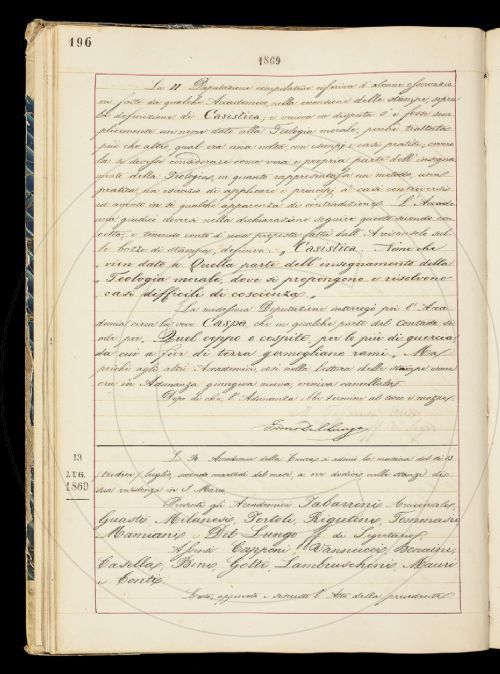 196
1869
La Deputazione compilatrice riferiva d'alcune osservazioni
su fatte da qualche Accademico, nella revisione delle stampe, sopra
la definizione di Casistica; e veniva in disputa s'e' fosse sem-
plicemente un nome dato alla Teologia morale, perché trattata
più che altro, qual era una volta, con esempi e casi pratici, ovvero
la si dovesse considerare come vera e propria parte dell'insegna-
mento della Teologia, in quanto rappresenta un metodo, una
pratica, un esercizio di applicare i principj a' casi controversi
ed aventi in sé qualche apparenza di contradizione. L'Accade-
mia giudicò doversi nella dichiarazione seguire questo secondo con-
cetto; e tenendo conto d'una proposta fatta dall'Arciconsolo sul-
le bozze di stampa, definiva: „ Casistica. Nome che
vien dato a Quella parte dell'insegnamento della
Teologia morale, dove si propongono e risolvono
casi difficili di coscienza. „
La medesima Deputazione interrogò poi l'Acca-
demia circa la voce Caspa, che in qualche parte del Contado si
ode per Quel ceppo o cespite, per lo più di quercia,
da cui a fior di terra germogliano rami. Ma
poiché agli altri Accademici, così nella lettura delle stampe come
ora in Adunanza giungeva nuova, veniva cancellata.
Dopo di che, l'Adunanza ebbe termine al tocco e mezzo.
Del Lungo
13
LUG.
1869
L'Accademia della Crusca si adunò la mattina del dì 13
luglio, secondo martedì del mese, a ore dodici nelle stanze di
sua residenza in S. Marco.
Presenti gli Accademici Tabarrini
Guasti, Milanesi, Tortoli, Rigutini, Tommasi,
Mamiani, Del Lungo ff. di Segretario.
Assenti Capponi, Vannucci, Bencini,
Casella, Bini, Gotti, Lambruschini, Mauri
e Conti.
Letto, approvato e sottoscritto l'Atto della precedente